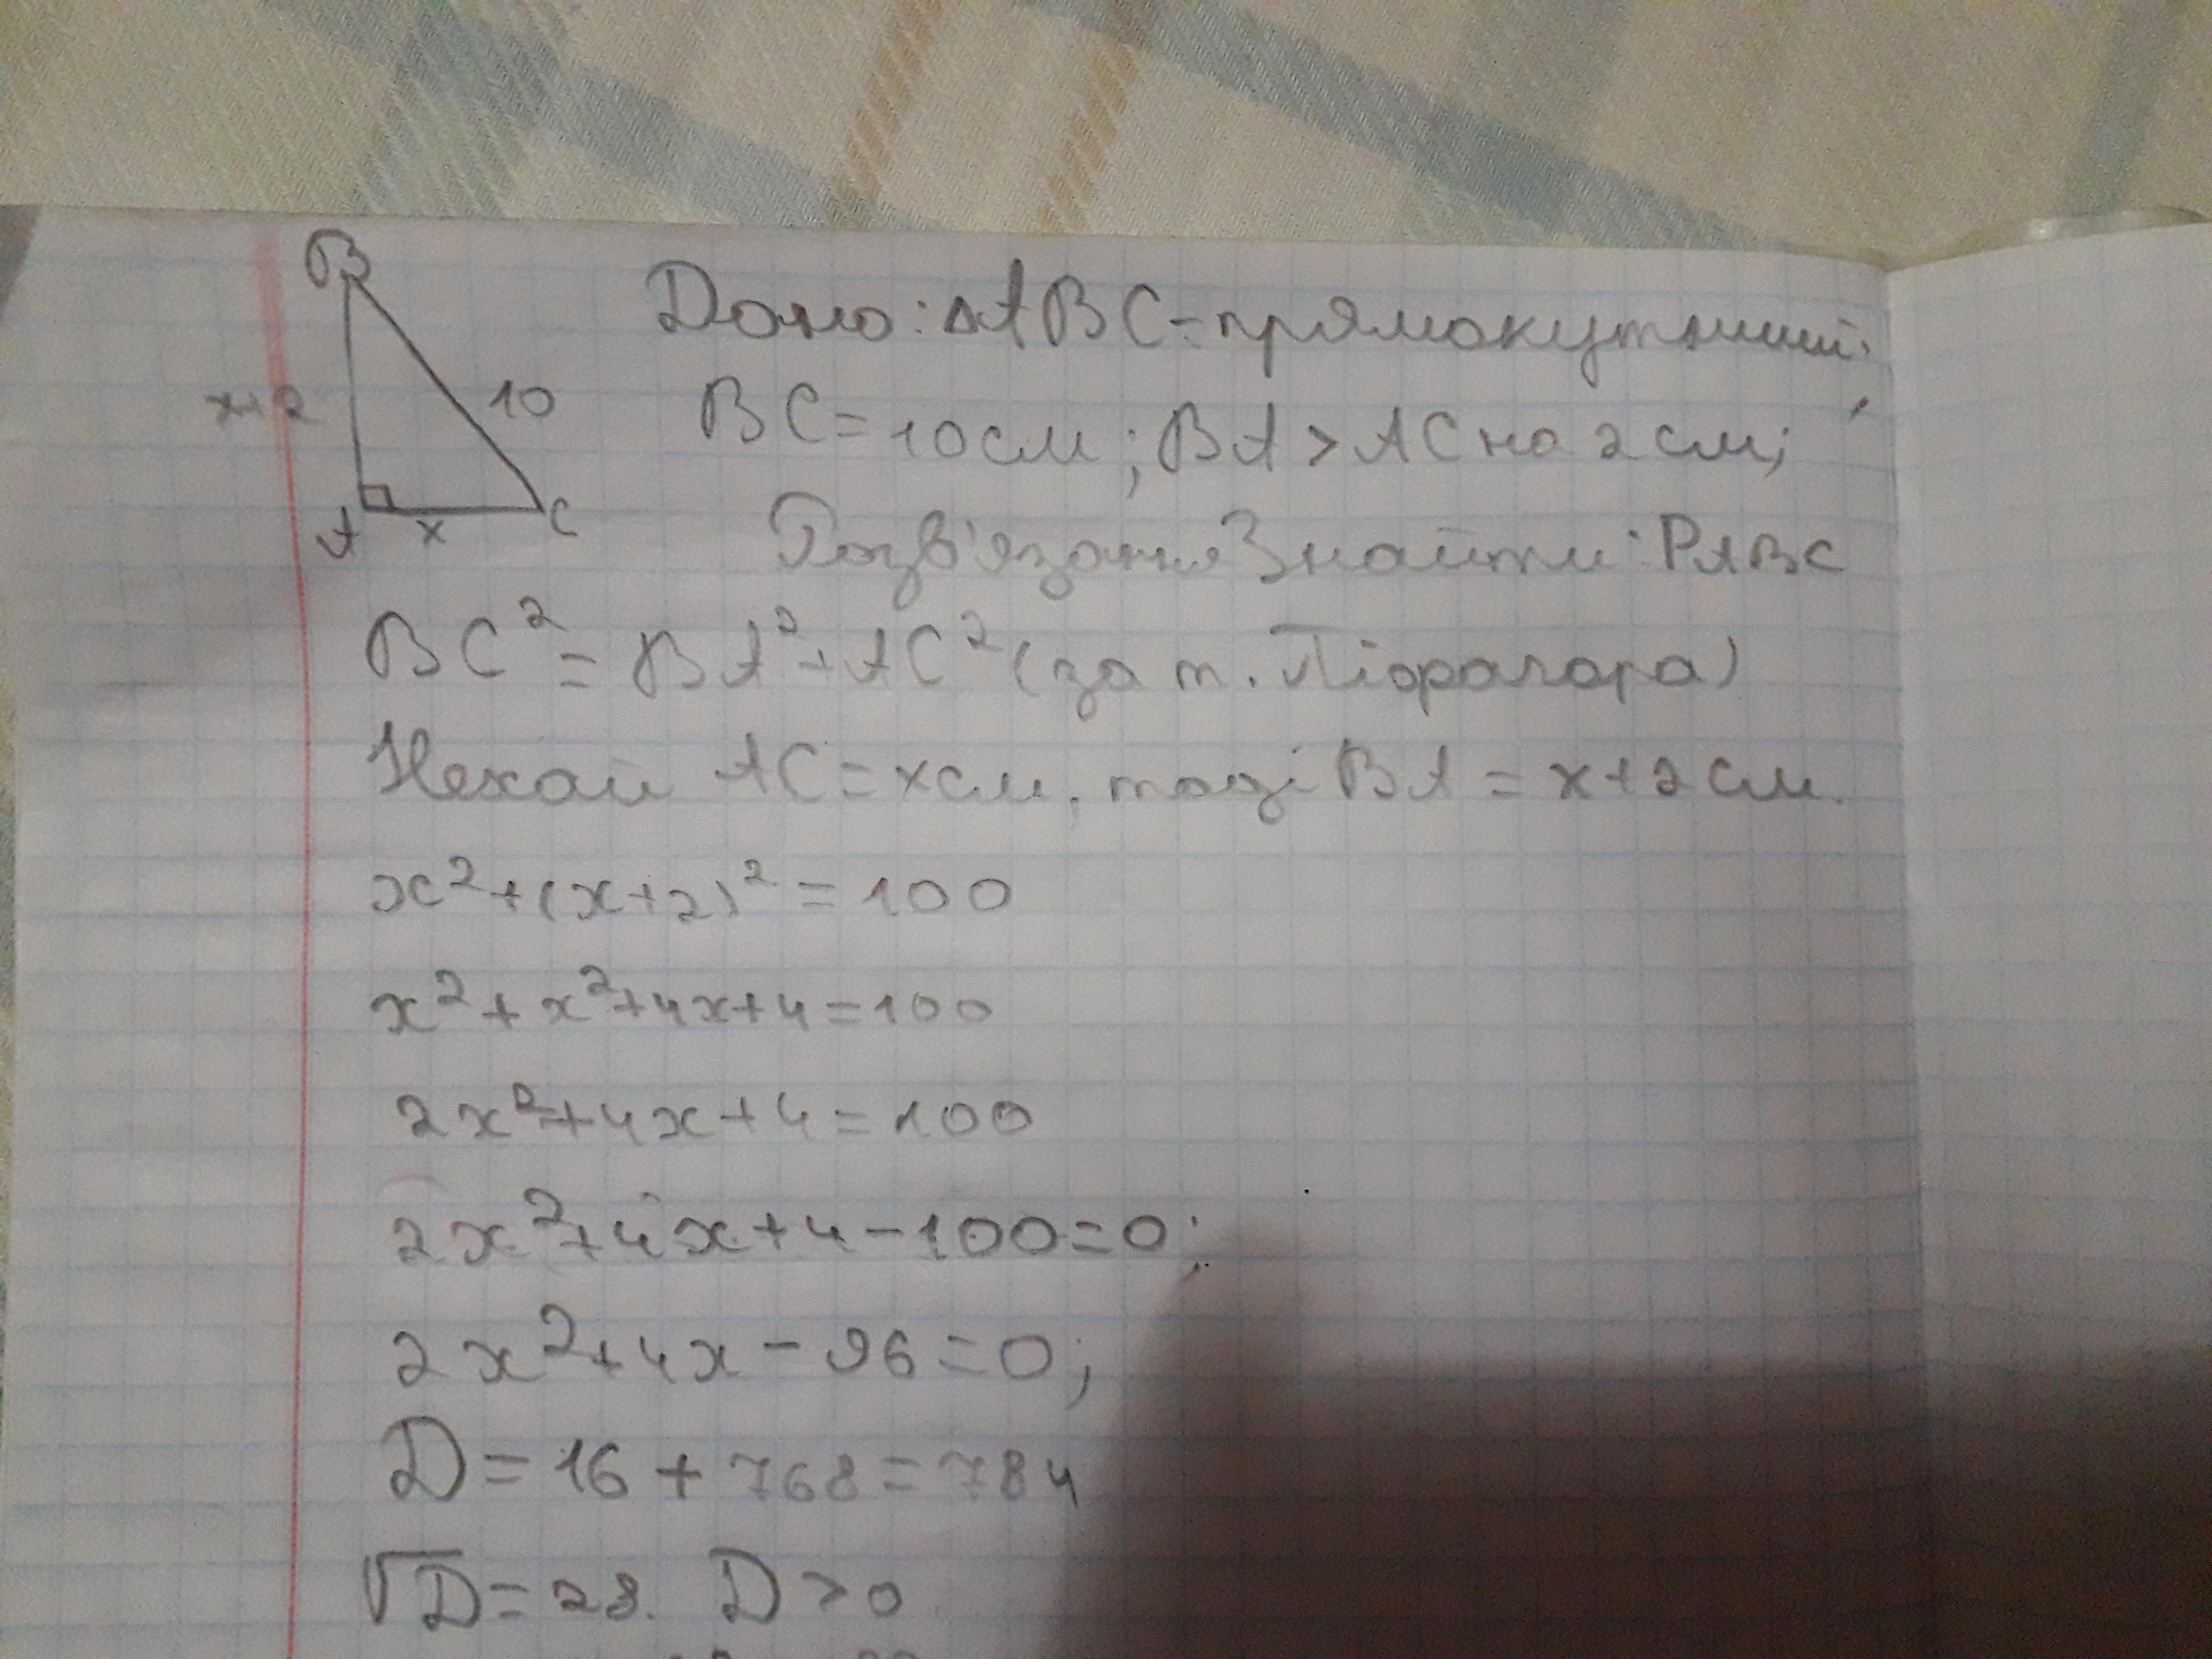 B
Дано: △ABC - прямокутний;
x+2
10
BC = 10см; BA > AC на 2 см;
A x C
Розв'язання Знайти: PABC
BC² = BA² + AC² (за т. Піфагора)
Нехай AC = x см, тоді BA = x+2 см.
x² + (x+2)² = 100
x² + x² + 4x + 4 = 100
2x² + 4x + 4 = 100
2x² + 4x + 4 - 100 = 0;
2x² + 4x - 96 = 0;
D = 16 + 768 = 784
√D = 28. D > 0